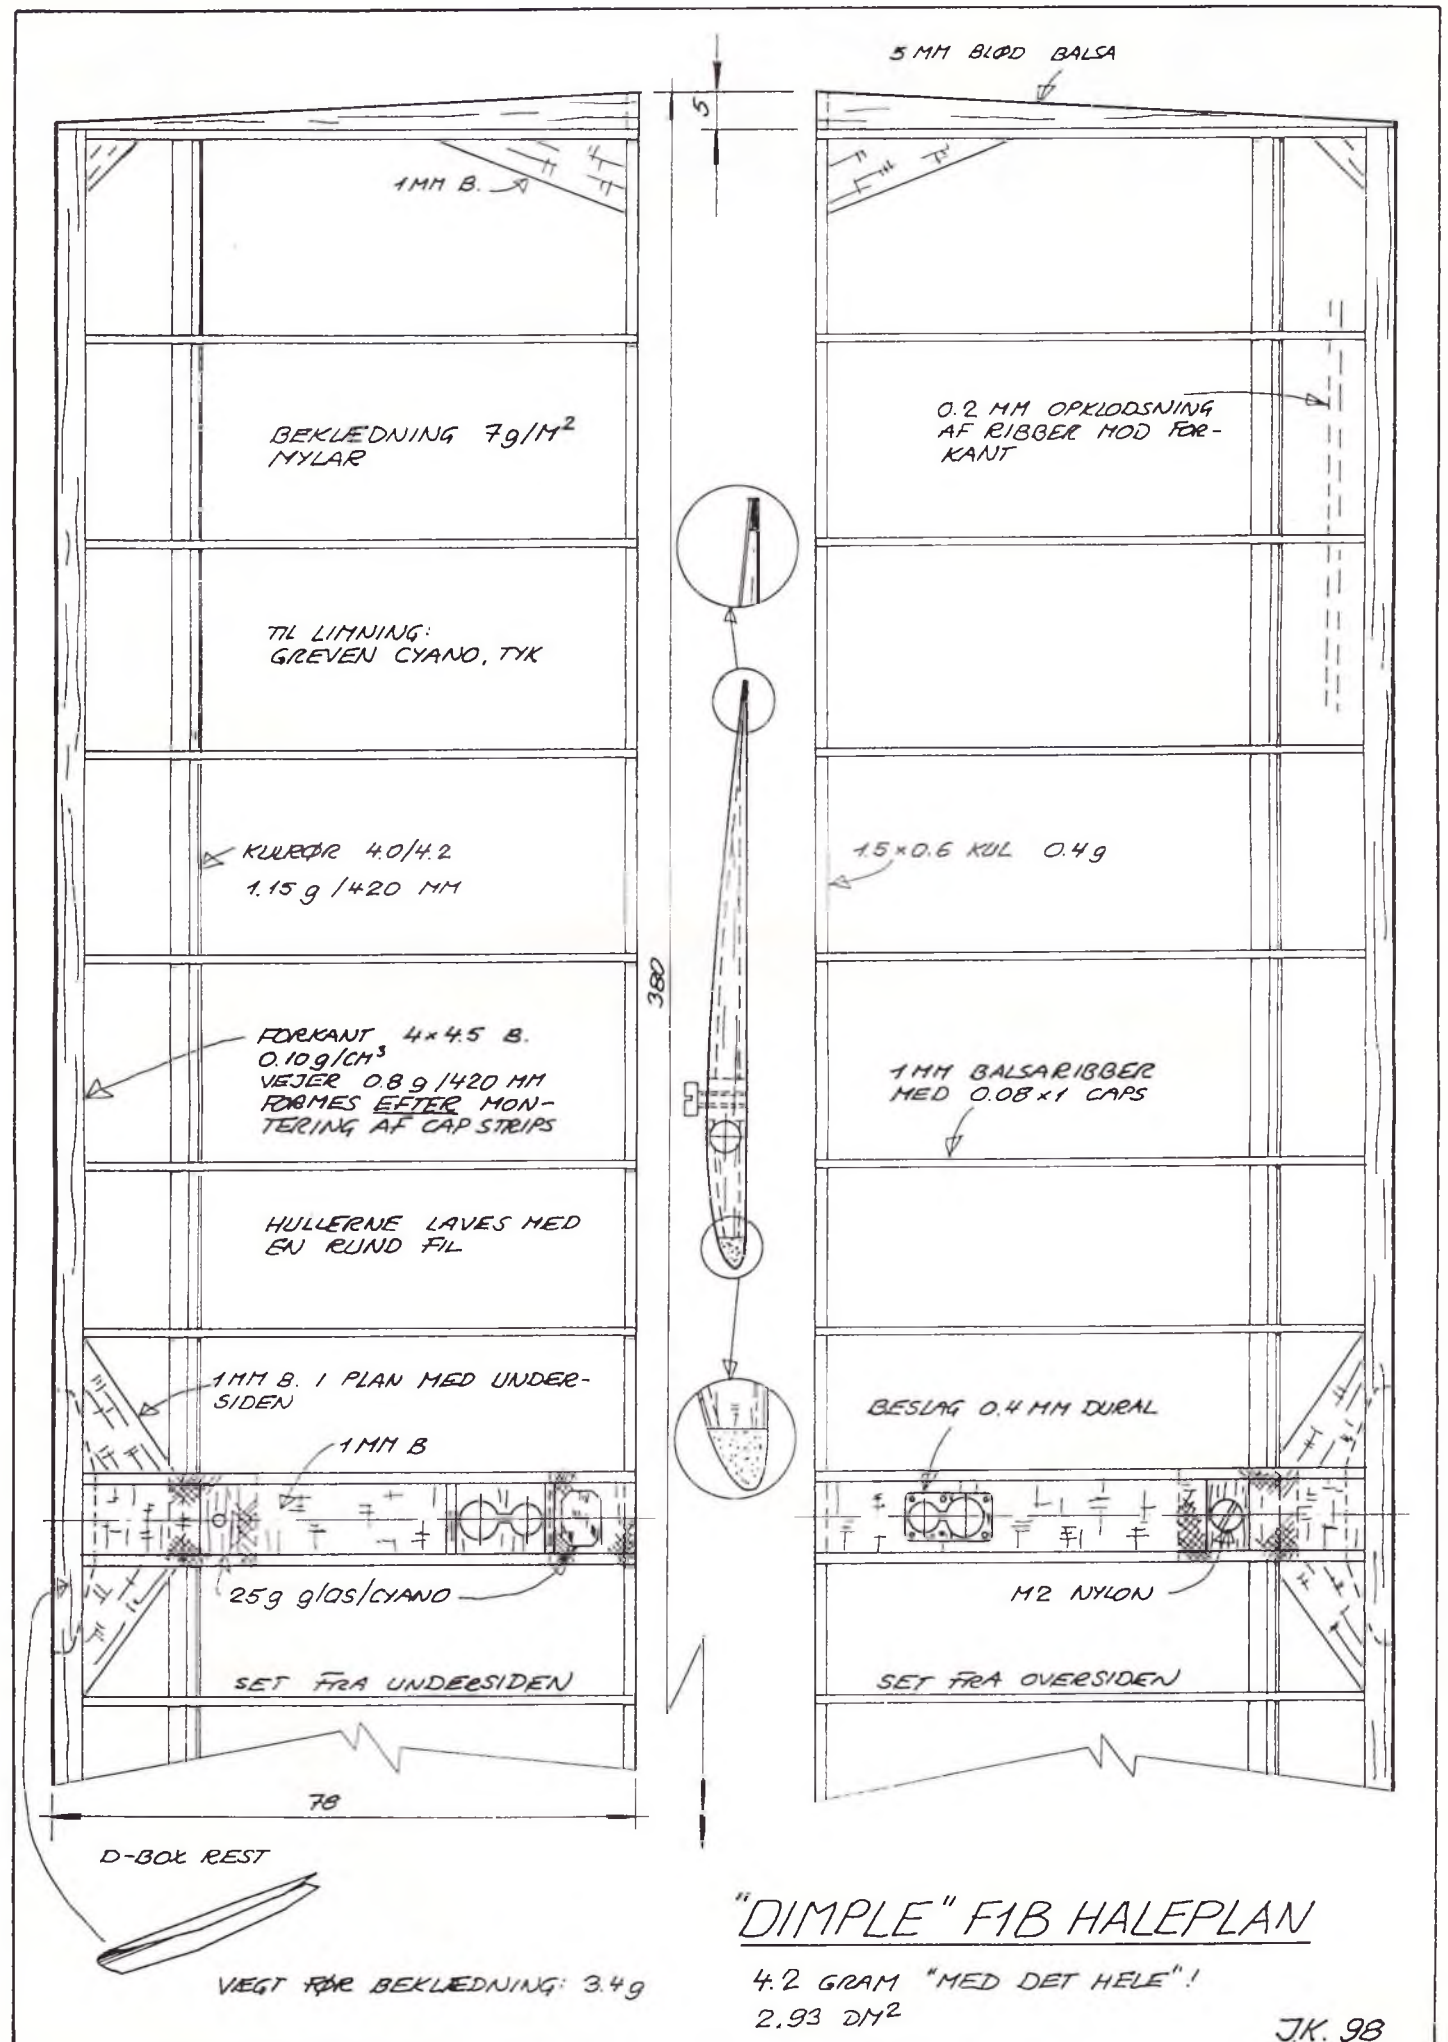 5 MM BLØD BALSA
5
1MM B.
BEKLÆDNING 7g/M²
MYLAR
0.2 MM OPKLODSNING
AF RIBBER MOD FOR-
KANT
TIL LIMNING:
GREVEN CYANO, TYK
KULRØR 4.0/4.2
1.15 g /420 MM
1.5×0.6 KUL 0.4g
380
FORKANT 4×4.5 B.
0.10 g/CM³
VEJER 0.8 g /420 MM
FORMES EFTER MON-
TERING AF CAP STRIPS
1MM BALSARIBBER
MED 0.08×1 CAPS
HULLERNE LAVES MED
EN RUND FIL
1MM B. I PLAN MED UNDER-
SIDEN
1MM B
BESLAG 0.4 MM DURAL
25g glas/CYANO
M2 NYLON
SET FRA UNDERSIDEN
SET FRA OVERSIDEN
78
D-BOX REST
VÆGT FØR BEKLÆDNING: 3.4g
"DIMPLE" F1B HALEPLAN
4.2 GRAM "MED DET HELE"!
2.93 DM²
J.K. 98